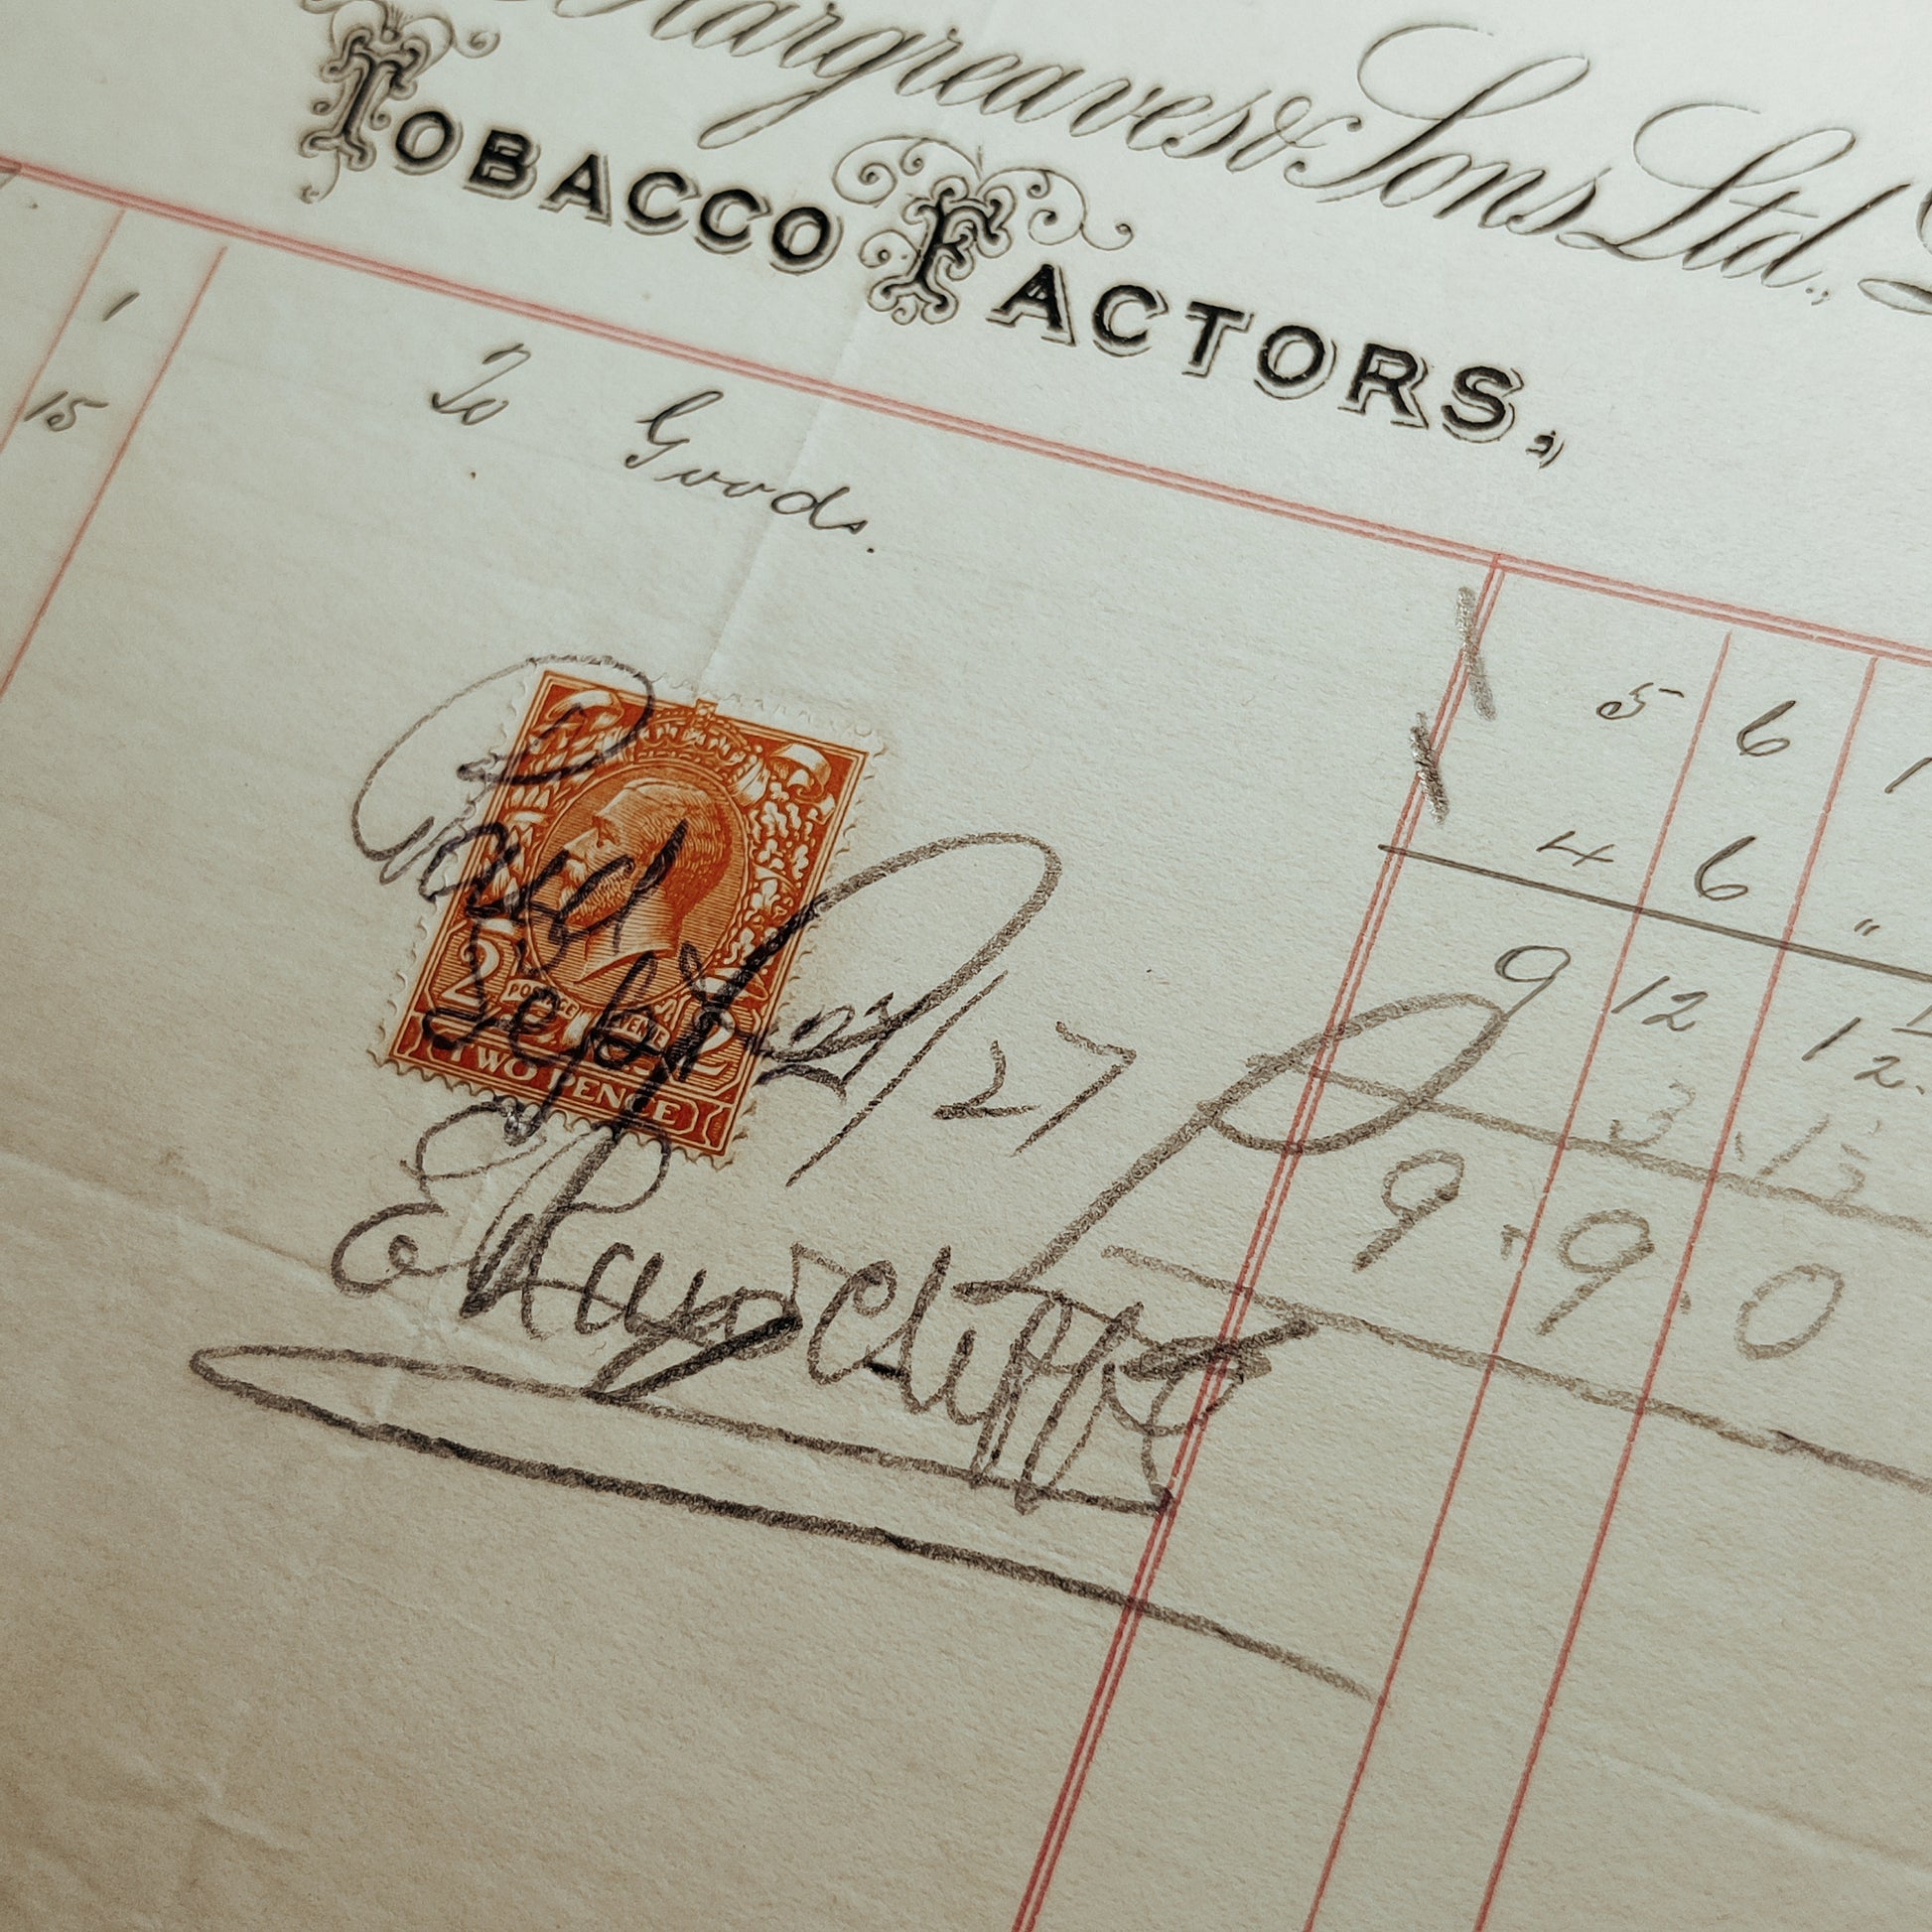 Hargreaves & Sons Ltd.,
TOBACCO FACTORS,
1 To Goods. 5 6 1
15 4 6 "
9 12 1
Paid
Sept 27/27
2 POSTAGE REVENUE 2
TWO PENCE
3 1½
9 . 9 . 0